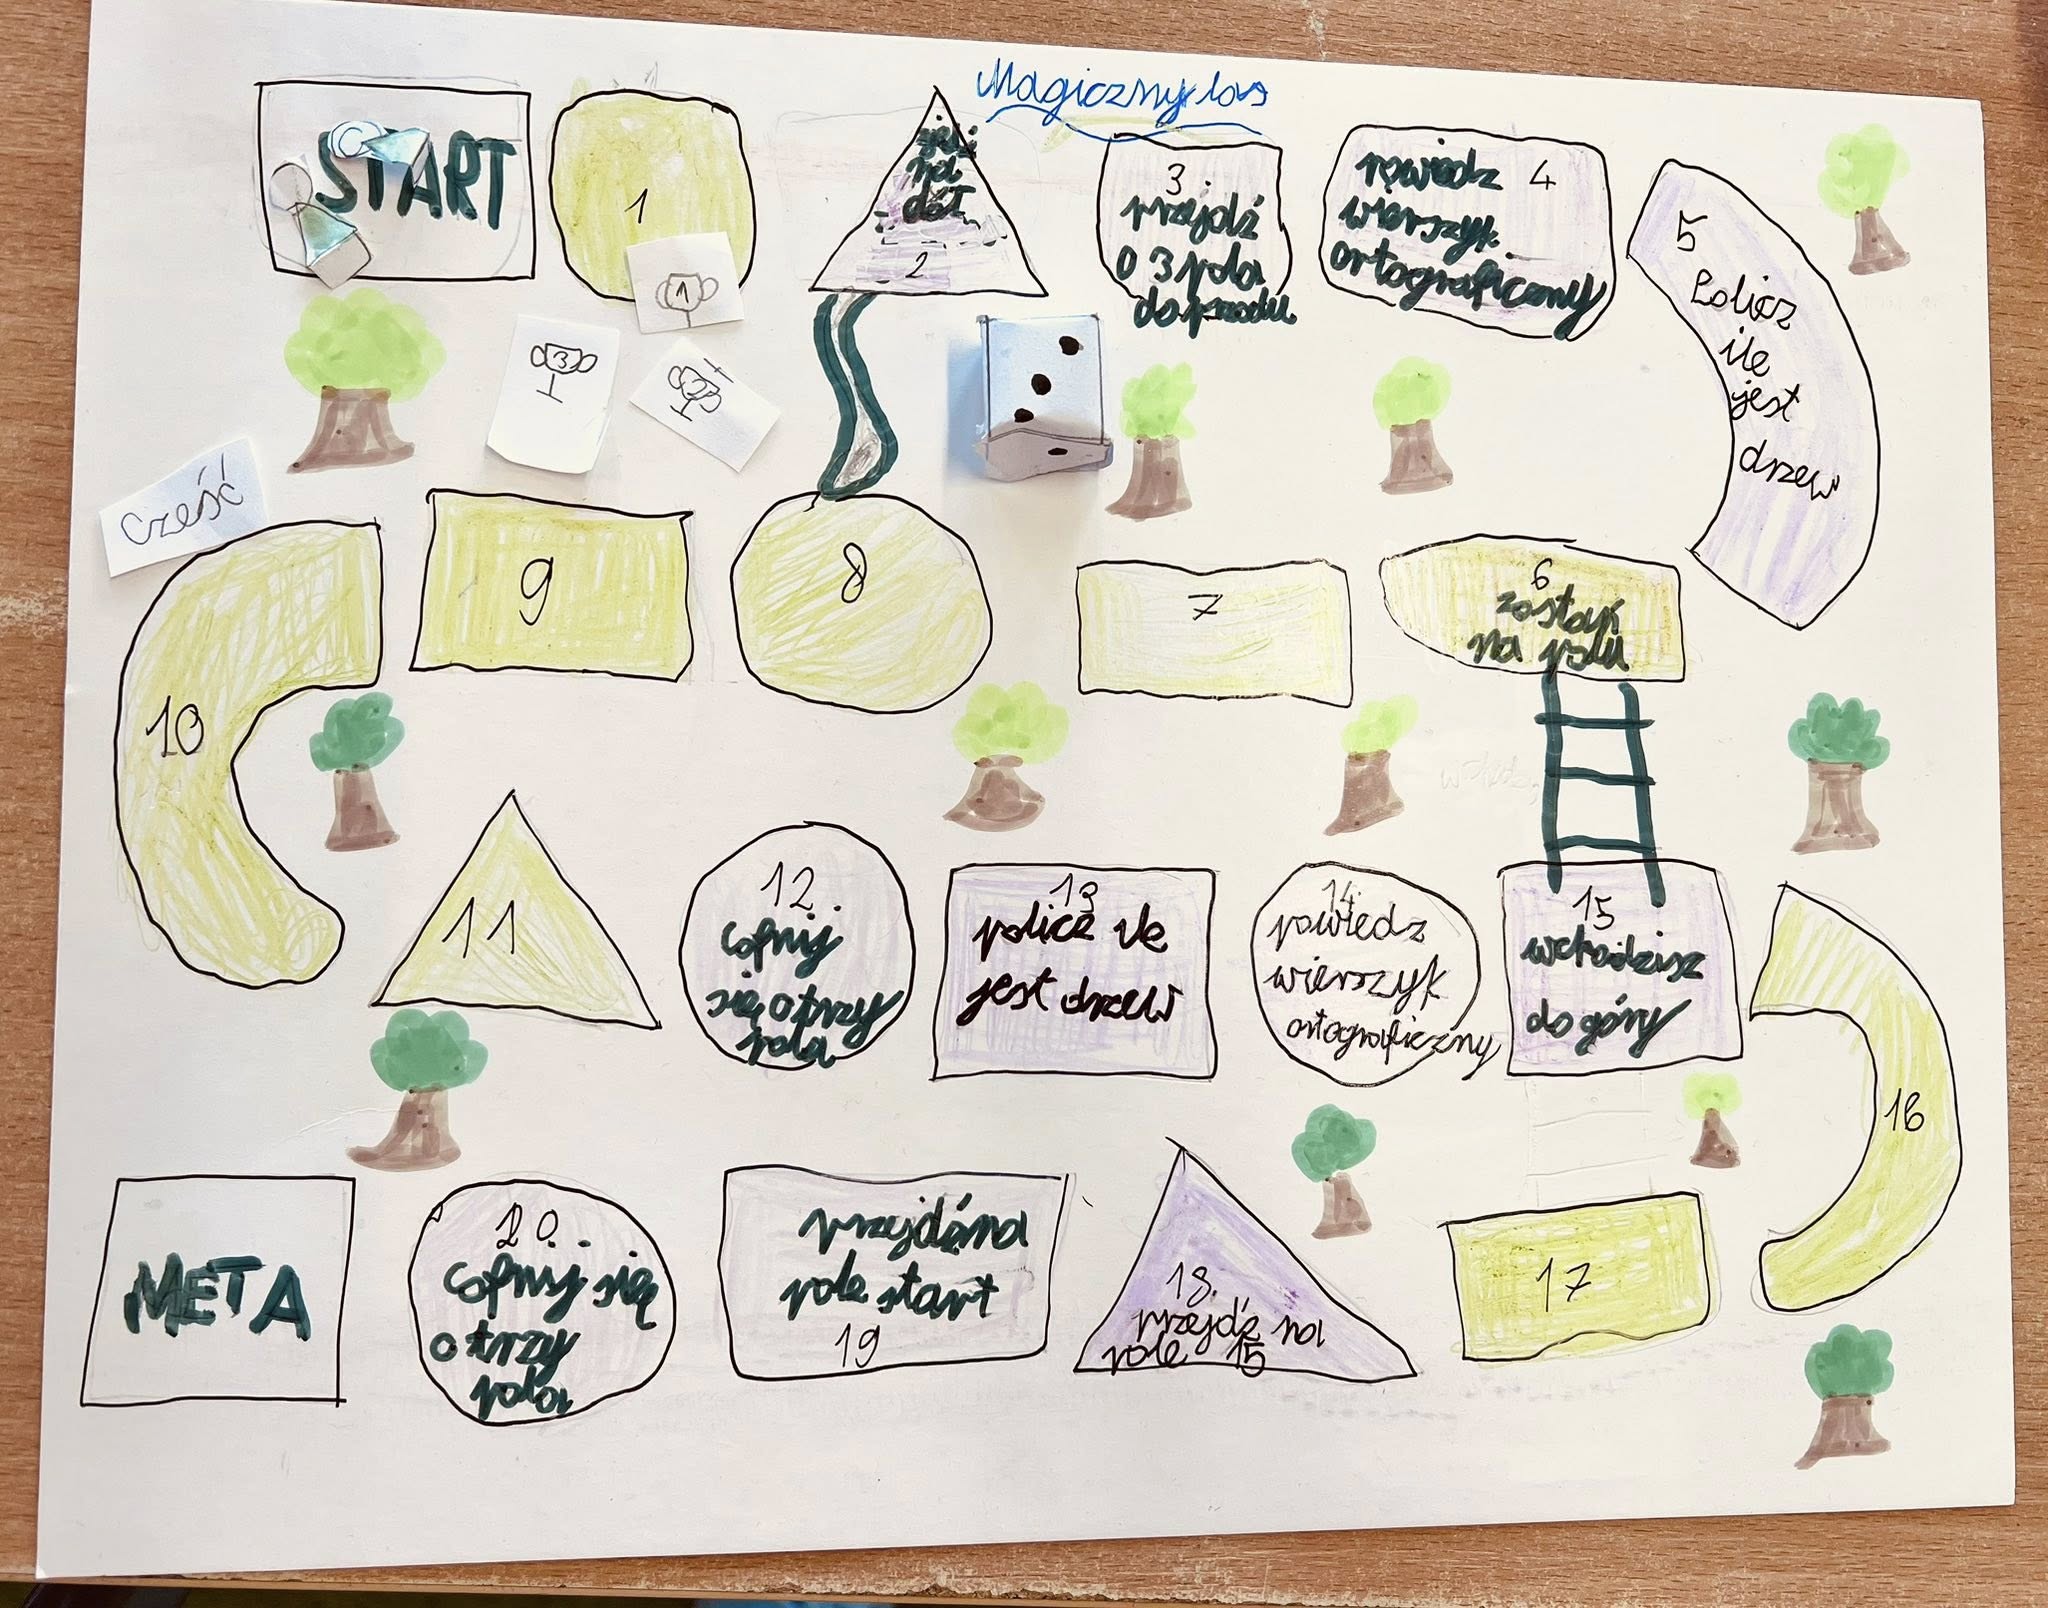 Magiczny las
START
1
na
dół
2
3.
przejdź
o 3 pola
do przodu
powiedz 4
wierszyk
ortograficzny
5
Policz
ile
jest
drzew
1
3
2
cześć
6
zostań
na polu
7
8
9
10
11
12.
cofnij
się o trzy
pola
13
policz ile
jest drzew
14.
powiedz
wierszyk
ortograficzny
15
wchodzisz
do góry
16
17
18.
przejdź na
pole 15
przejdź na
pole start
19
20.
cofnij się
o trzy
pola
META